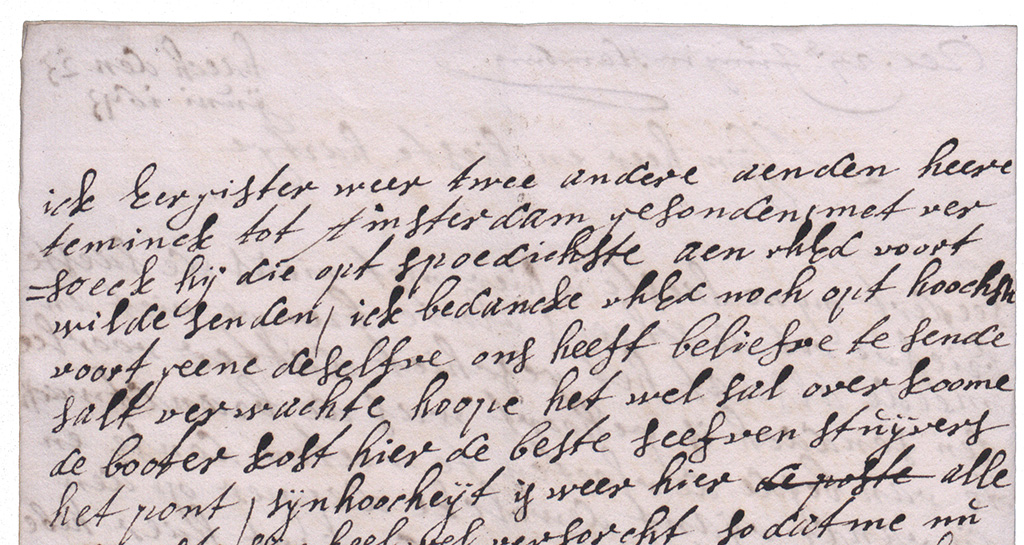 ick eergister weer twee andere aenden heere
teminck tot Amsterdam gesonden, met ver
=soeck hij die opt spoedichste aen uhEd voort
wilde senden, ick bedancke uhEd noch opt hoochste
voort geene deselfve ons heeft beliefve te sende
salt verwachte hoope het wel sal over koome
de booter kost hier de beste seefven stuijvers
het pont, sijn hoocheijt is weer hier de poste alle
heel wel versorcht so datme nu